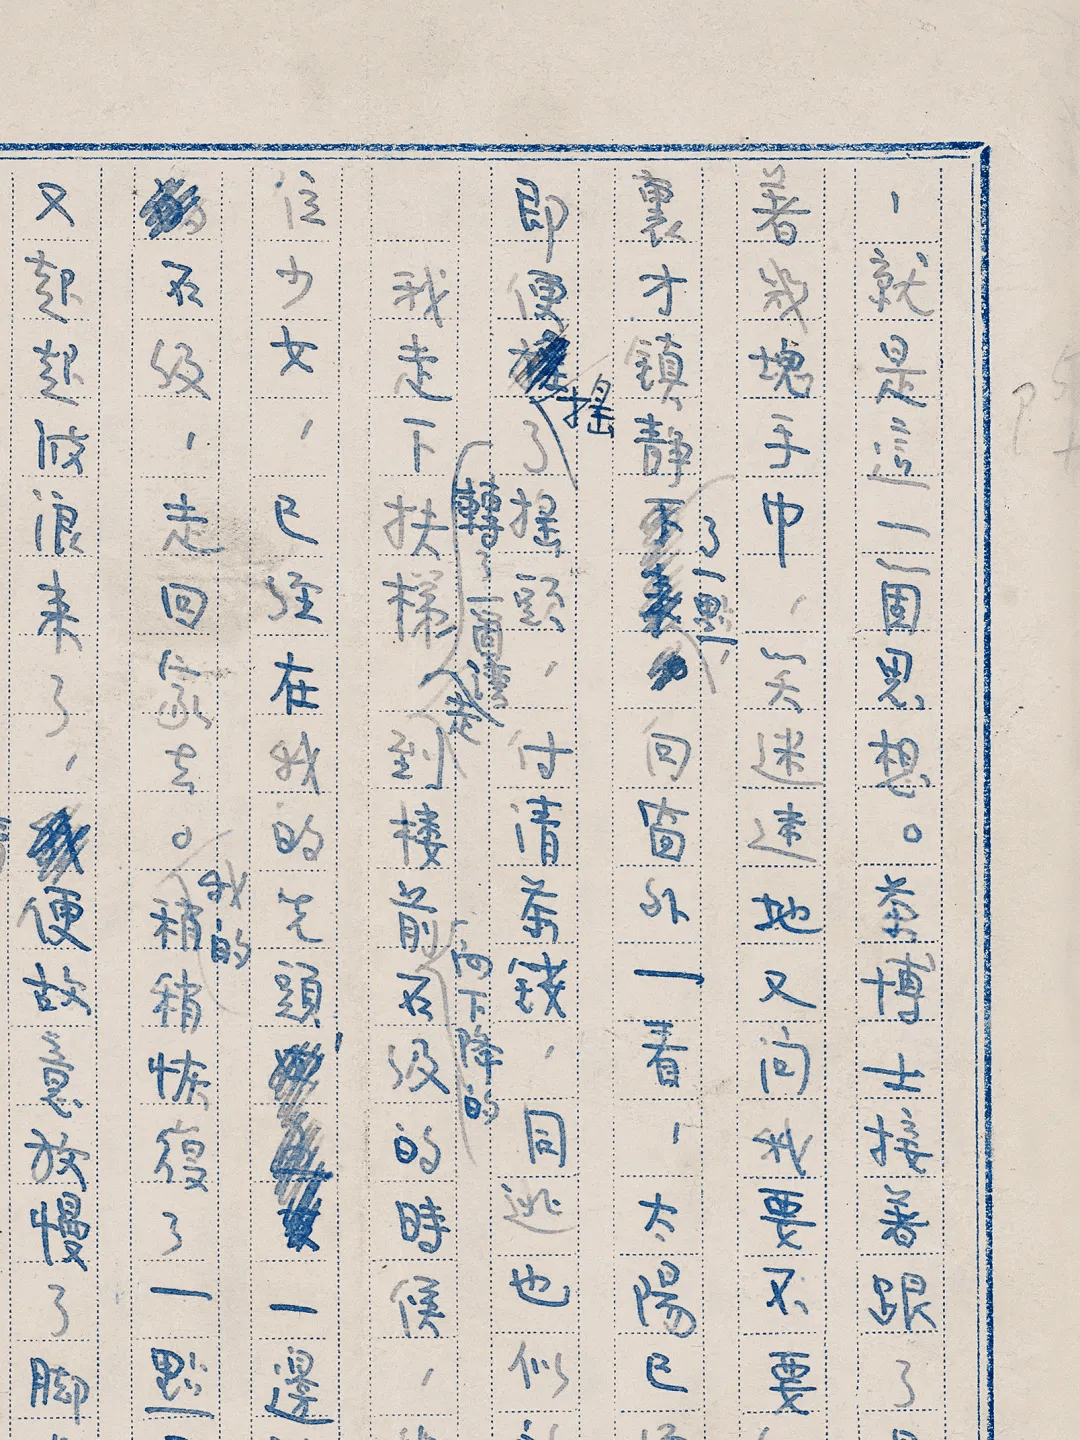 ，就是這一個思想。茶博士接着跟了
著幾塊手巾，笑迷迷地又问我要不要
裏才鎮靜了一點，向窗外一看，太陽已
即便搖了搖頭，付清茶錢，同逃也似
我走下扶梯，轉了一個彎走到樓前向下降的石级的時候，
位少女，已经在我的先頭一邊
石级，走回家去。我的稍稍恢復了一點
又起起波浪来了，便故意放慢了脚